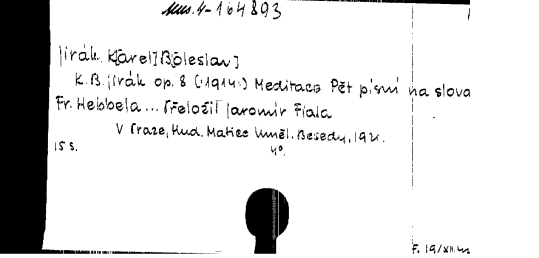 Mus. 4-164893
Jirák, K[arel] Boleslav]
K. B. Jirák op. 8 (:1914:) Meditace Pět písní na slova
Fr. Hebbela... Přeložil Jaromír Fiala
V Praze, Hud. Matice Uměl. Besedy, 1921.
15 s. 4°.
F. 19/XII.